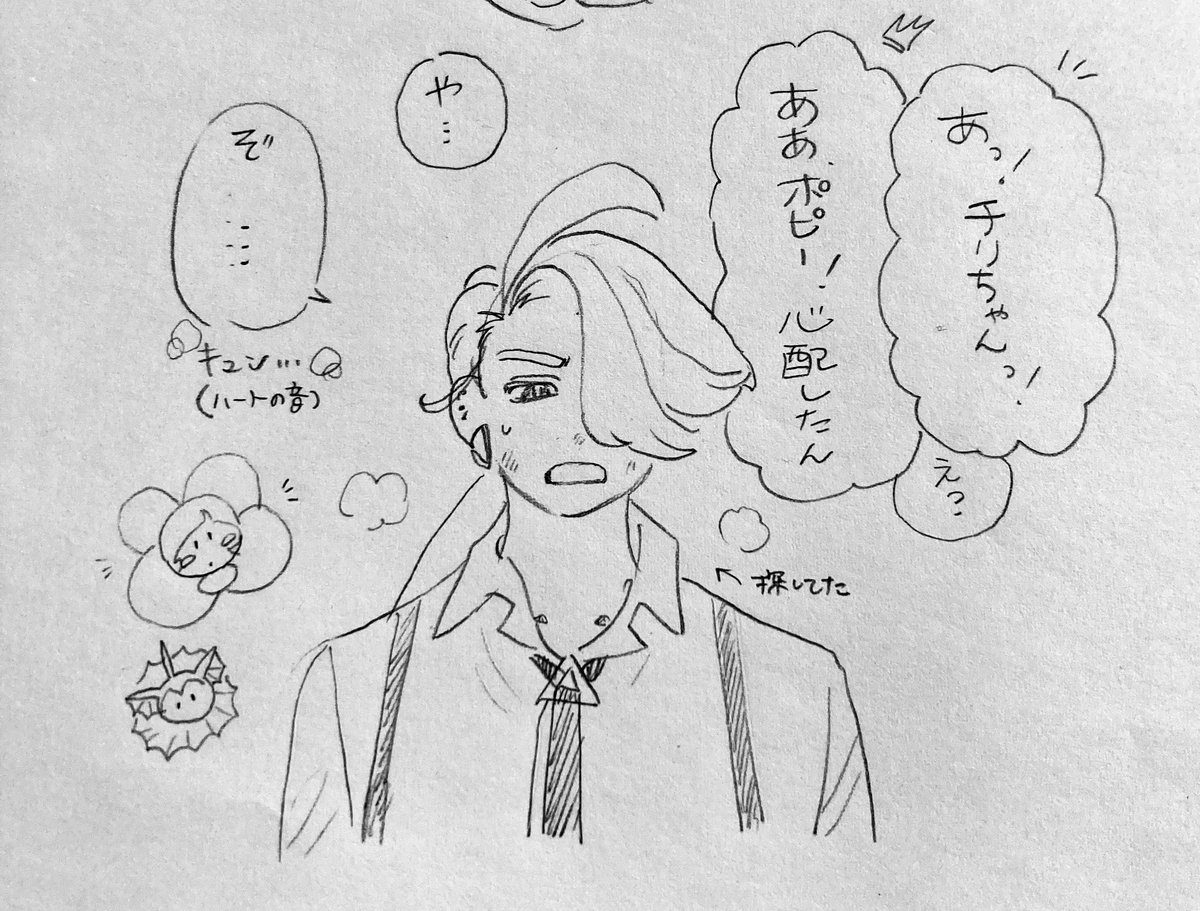 あっ!
チリちゃんっ!
ああ、ポピー!心配したん
えっ?
や…
ぞ
……
キュン…
(ハートの音)
↖探してた